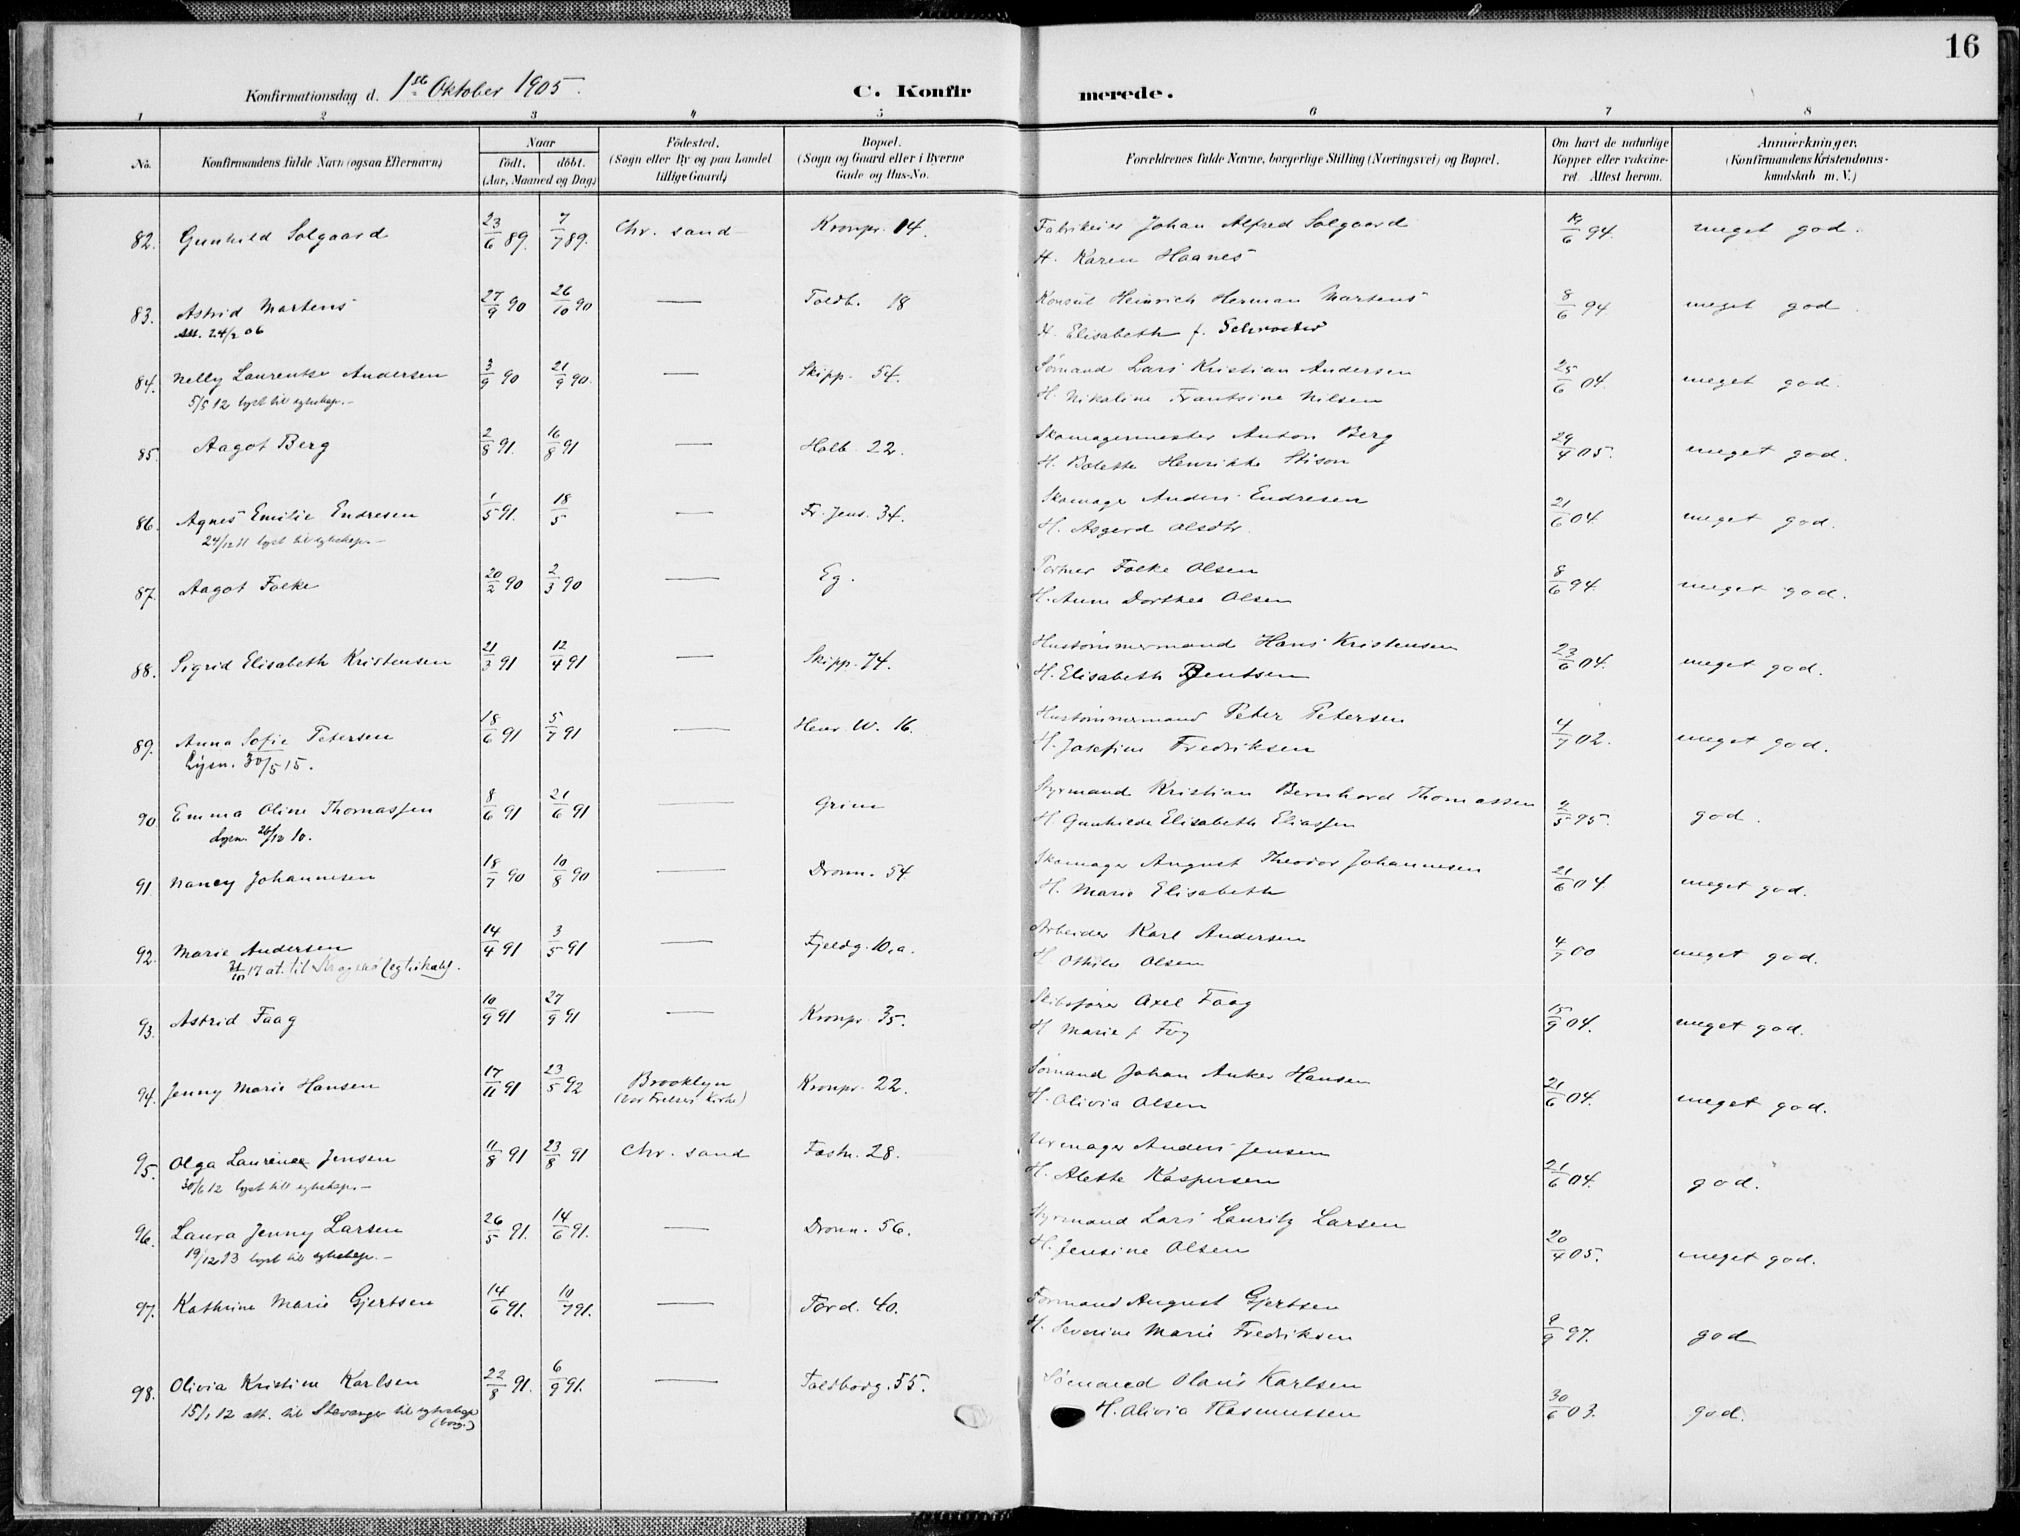 16
Konfirmationsdag d. 1ste Oktober 1905.
C. Konfirmerede.
1 2 3 4 5 6 7 8
No. Konfirmandens fulde Navn (ogsaa Efternavn) Naar födt. döbt. (Aar, Maaned og Dag) Födested. (Sogn eller By og paa Landet tillige Gaard) Bopæl. (Sogn og Gaard eller i Byerne Gade og Hus-No. Forældrenes fulde Navne, borgerlige Stilling (Næringsvei) og Bopæl. Om havt de naturlige Kopper eller vakcineret. Attest herom. Anmærkninger. (Konfirmandens Kristendomskundskab m. V.)
82. Gunhild Solgaard 23/6 89. 7/7 89. Chr. sand Kronpr. 14. Fabrikeier Johan Alfred Solgaard 6 94. meget god.
H. Karen Haanes
83. Astrid Martens 27/9 90 26/10 90 — Toldb. 18 Konsul Heinrich Herman Martens 8/6 94 meget god.
Att. 24/2 06 H. Elisabeth f. Schrøder
84. Nelly Laurentse Andersen 3/9 90 21/9 90. — Skipp. 54. Sømand Lars Kristian Andersen 25/6 04. meget god.
5/5 12 lyst til egteskap.- H. Nikoline Frantsine Nilsen
85. Aagot Berg 2/8 91. 16/8 91 — Holb. 22. Skomagermester Anton Berg 29/4 05. meget god.
H. Bolette Henrikke Stison
86. Agnes Emilie Endresen 1/5 91. 18/5 — Fr. Jens. 34. Skomager Anders Endresen 21/6 04 meget god.
24/12 11 lyst til egteskap.- H. Asgerd Olsdtr.
87. Aagot Folke 20/2 90 2/3 90 — Eg. Portner Folke Olsen 8/6 94. meget god.
H. Anne Dorthea Olsen
88. Sigrid Elisabeth Kristensen 21/3 91 12/4 91 — Skipp. 74. Hustømmermand Hans Kristensen 23/6 04. meget god.
H. Elisabeth Bentsen
89. Anna Sofie Petersen 18/6 91 5/7 91 — Henr. W. 16. Hustømmermand Peter Petersen 4/7 02. meget god.
Lysn. 30/5 15. H. Josefine Fredriksen
90. Emma Oline Thomassen 8/6 91 21/6 91 — Grim Styrmand Kristian Bernhard Thomassen 5 95. god.
Lysn. 26/12 10. H. Gunhilde Elisabeth Eliassen
91 Nancy Johannesen 18/7 90 10/8 90 — Dronn. 54 Skomager August Theodor Johannesen 21/6 04. meget god.
H. Marie Elisabeth
92. Marie Andersen 14/4 91 3/5 91 — Fjeldg. 10.a. Arbeider Karl Andersen 4/7 00 meget god.
17 at. til Kragerø (egteskab). H Othilie Olsen
93. Astrid Faag 10/9 91 27/9 91 — Kronpr. 35. Skibsfører Axel Faag 15/9 04. meget god.
H Marie f. Fog
94. Jenny Marie Hansen 17/11 91 23/5 92 Brooklyn (vor Frelsers Kirke) Kronpr. 22. Sømand Johan Anker Hansen 21/6 04. meget god.
H. Olivia Olsen
95. Olga Laurence Jensen 11/8 91 23/8 91 Chr. sand Festn. 28. Urmager Anders Jensen 21/6 04. god.
30/6 12 lyst till egteskap.- H. Alette Kaspersen
96. Laura Jenny Larsen 26/5 91. 14/6 91. — Dronn. 56. Styrmand Lars Lauritz Larsen 20/4 05. meget god.
19/12 13 lyst til egteskap.- H. Jensine Olsen
97. Kathrine Marie Gjertsen 14/6 91. 10/7 91. — Tord. 40. Formand August Gjertsen 9/9 97. god
H. Severine Marie Fredriksen
98. Olivia Kristine Karlsen 22/8 91. 6/9 91. — Toldbodg. 55. Sømand Olaus Karlsen 30/6 03. god.
15/1 12 att. til Stavanger til egteskap (borg.) H. Olivia Rasmussen